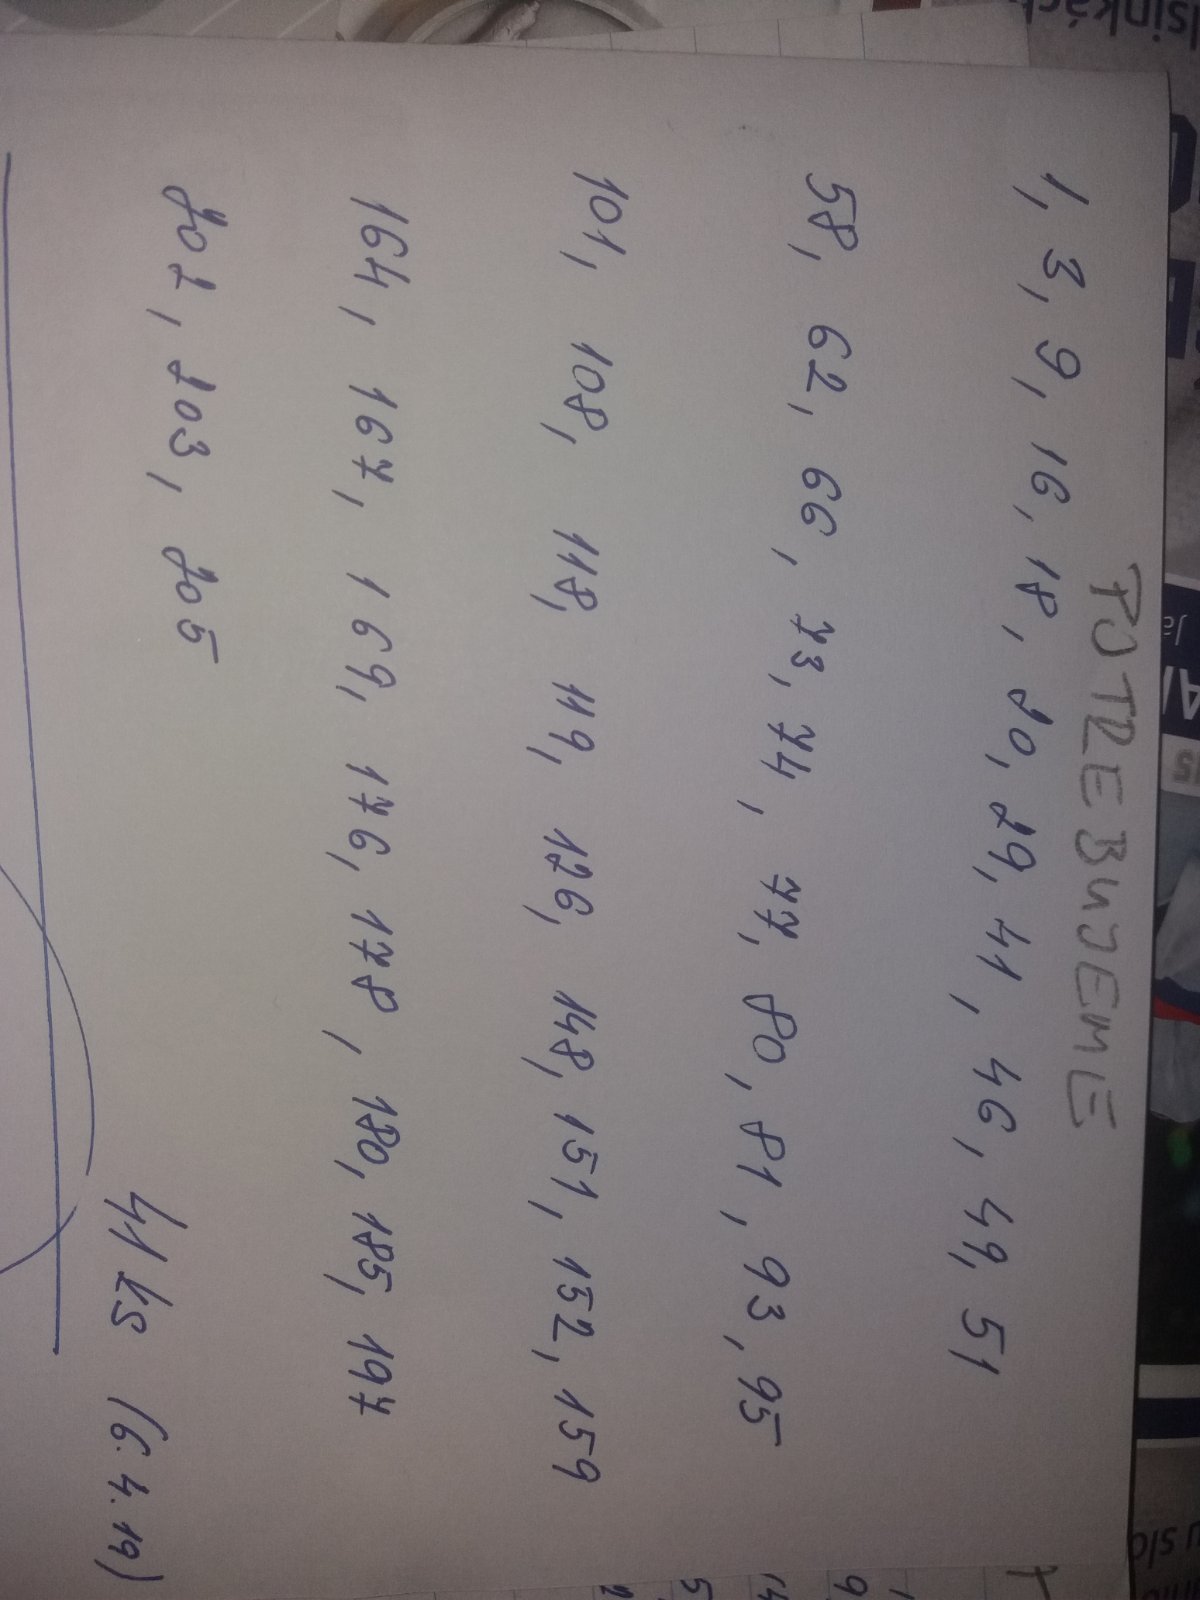 POTREBUJEME
1, 3, 9, 16, 18, 20, 29, 41, 46, 49, 51
58, 62, 66, 73, 74, 77, 80, 81, 93, 95
101, 108, 118, 119, 126, 148, 151, 152, 159
164, 167, 169, 176, 178, 180, 185, 197
202, 203, 205
41 ks (6.4.19)